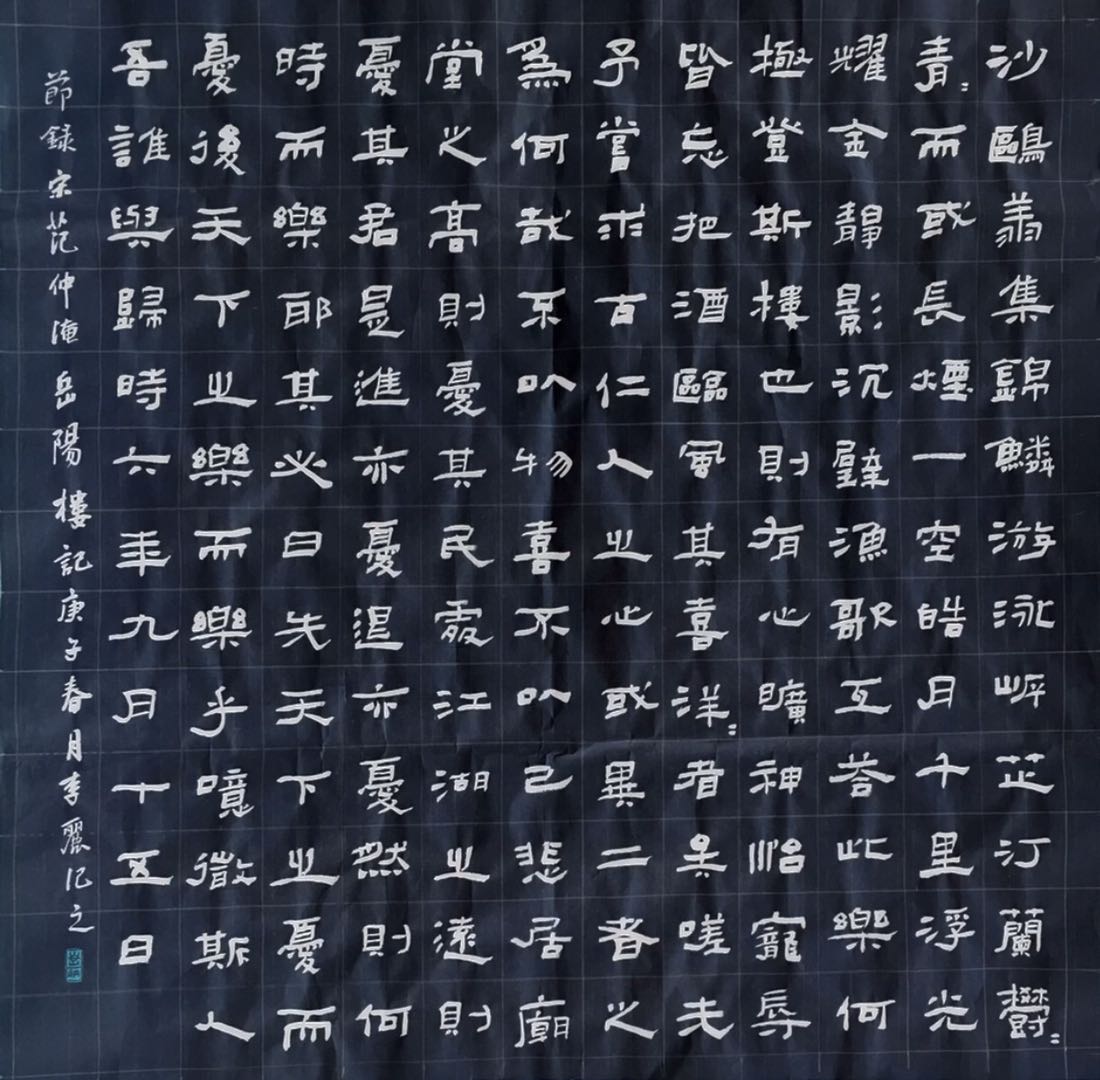 沙鷗翔集錦鱗游泳岸芷汀蘭鬱〻
青〻而或長煙一空皓月千里浮光
耀金靜影沉璧漁歌互荅此樂何
極登斯樓也則有心曠神怡寵辱
皆忘把酒臨風其喜洋〻者矣嗟夫
予嘗求古仁人之心或異二者之
為何哉不以物喜不以己悲居廟
堂之高則憂其民處江湖之遠則
憂其君是進亦憂退亦憂然則何
時而樂耶其必曰先天下之憂而
憂後天下之樂而樂乎噫微斯人
吾誰與歸時六年九月十五日
節録宋范仲淹岳陽樓記庚子春月李麗记之